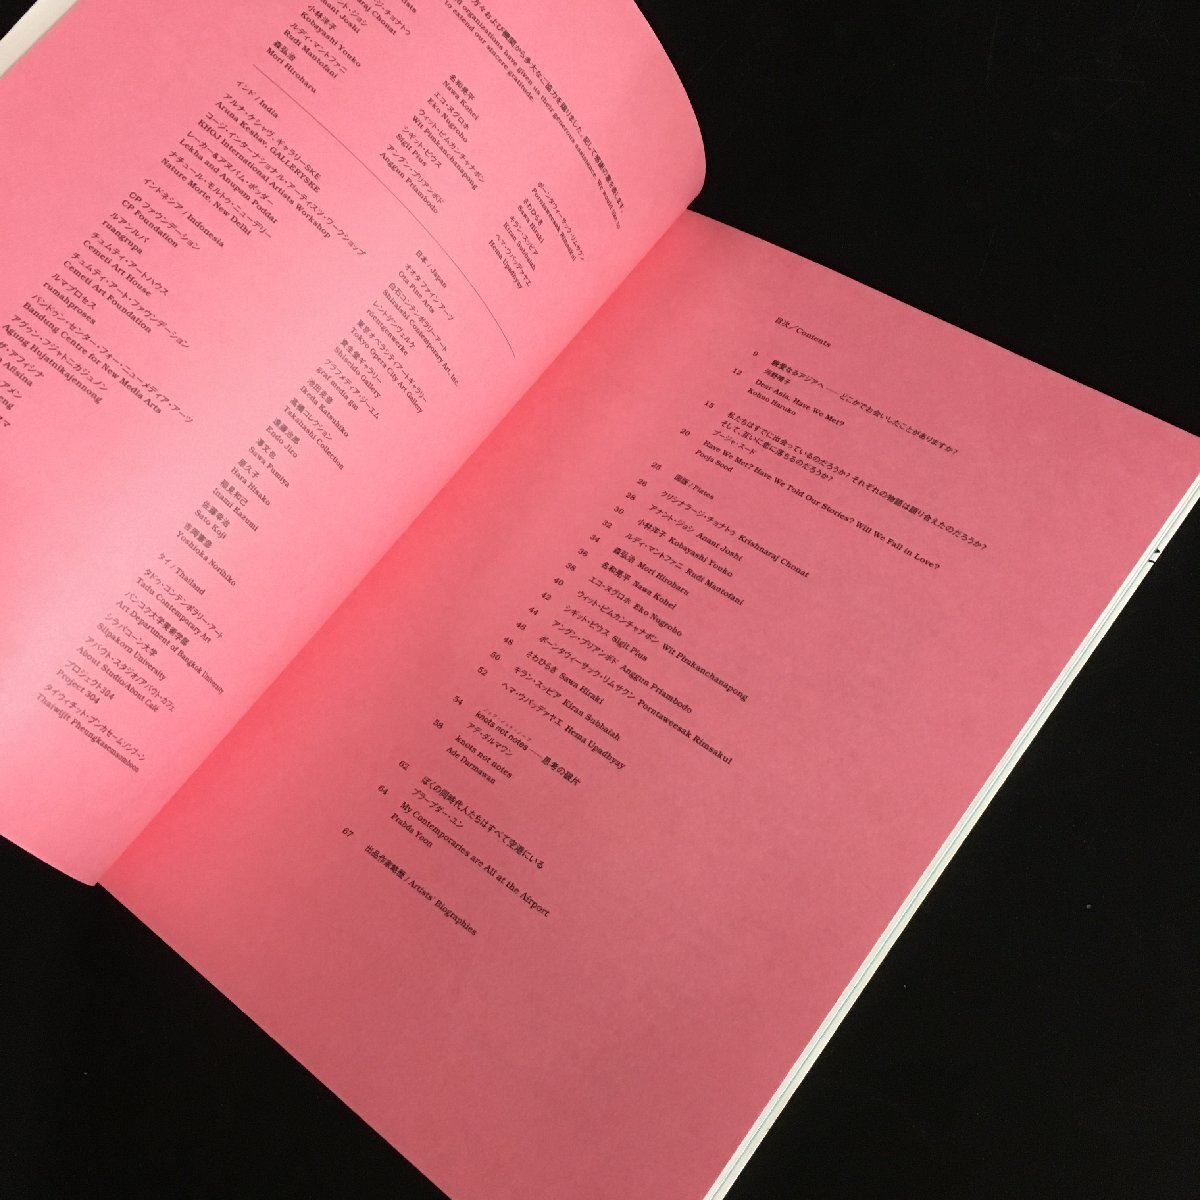 方々および機関から多大なご協力を賜りました。記して感謝の意を表します。
organizations have given us their generous assistance. We would like to
to extend our sincere gratitude.
Joshi
小林洋子
Kobayashi Youko
ルディ・マントファニ
Rudi Mantofani
森弘治
Mori Hiroharu
名和晃平
Nawa Kohei
エコ・ヌグロホ
Eko Nugroho
ウィット・ピムカンチャナポン
Wit Pimkanchanapong
シギット・ピウス
Sigit Pius
アングン・プリアンボド
Anggun Priambodo
ポーンタウィーサック・リムサクン
Porntaweesak Rimsakul
さわひらき
Sawa Hiraki
キラン・スッビア
Kiran Subbaiah
ヘマ・ウパッデァヤエ
Hema Upadhyay
インド / India
アルナ・ケシャヴ、ギャラリーSKE
Aruna Keshav, GALLERYSKE
コージ・インターナショナル・アーティスツ・ワークショップ
KHOJ International Artists Workshop
レーカー&アヌパム・ポッダー
Lekha and Anupam Poddar
ナチュール・モルトゥ・ニュー・デリー
Nature Morte, New Delhi
インドネシア / Indonesia
CP ファウンデーション
CP Foundation
ルアンルパ
ruangrupa
チュムティ・アートハウス
Cemeti Art House
チュムティ・アート・ファウンデーション
Cemeti Art Foundation
ルマプロセス
rumahproses
バンドゥン・センター・フォー・ニューメディア・アーツ
Bandung Centre for New Media Arts
アグゥン・フジャトニカジュノン
Agung Hujatnikajennong
日本 / Japan
オオタファインアーツ
Ota Fine Arts
白石コンテンポラリーアート
Shiraishi Contemporary Art, Inc.
レントゲンヴェルケ
röentgenwerke
東京オペラシティアートギャラリー
Tokyo Opera City Art Gallery
資生堂ギャラリー
Shiseido Gallery
グラフメディア・ジーエム
graf media gm
池田克浩
Ikeda Katsuhiko
高橋コレクション
Takahashi Collection
遠藤治郎
Endo Jiro
澤文也
Sawa Fumiya
原久子
Hara Hisako
稲見和己
Inami Kazumi
佐藤幸治
Sato Koji
吉岡憲彦
Yoshioka Norihiko
タイ / Thailand
タドゥ・コンテンポラリー・アート
Tadu Contemporary Art
バンコク大学美術学部
Art Department of Bangkok University
シラパコーン大学
Silpakorn University
アバウト・スタジオ/アバウト・カフェ
About Studio/About Café
プロジェクト304
Project 304
タイウィチット・プンカセームソンブーン
Thaiwijit Pheungkasemsomboon
目次/Contents
9 親愛なるアジアへ――どこかでお会いしたことがありますか?
河野晴子
12 Dear Asia, Have We Met?
Kohno Haruko
15 私たちはすでに出会っているのだろうか? それぞれの物語は語り合えたのだろうか?
そして、互いに恋に落ちるのだろうか?
プージャ・スード
20 Have We Met? Have We Told Our Stories? Will We Fall in Love?
Pooja Sood
25 図版 / Plates
26 クリシナラージ・チョナトゥ Krishnaraj Chonat
28 アナント・ジョシ Anant Joshi
30 小林洋子 Kobayashi Youko
32 ルディ・マントファニ Rudi Mantofani
34 森弘治 Mori Hiroharu
36 名和晃平 Nawa Kohei
38 エコ・ヌグロホ Eko Nugroho
40 ウィット・ピムカンチャナポン Wit Pimkanchanapong
42 シギット・ピウス Sigit Pius
44 アングン・プリアンボド Anggun Priambodo
46 ポーンタウィーサック・リムサクン Porntaweesak Rimsakul
48 さわひらき Sawa Hiraki
50 キラン・スッビア Kiran Subbaiah
52 ヘマ・ウパッデァヤエ Hema Upadhyay
54 knots not notes――思考の破片
アデ・ダルマワン
58 knots not notes
Ade Darmawan
62 ぼくの同時代人たちはすべて空港にいる
プラープダー・ユン
64 My Contemporaries are All at the Airport
Prabda Yoon
67 出品作家略歴 / Artists' Biographies